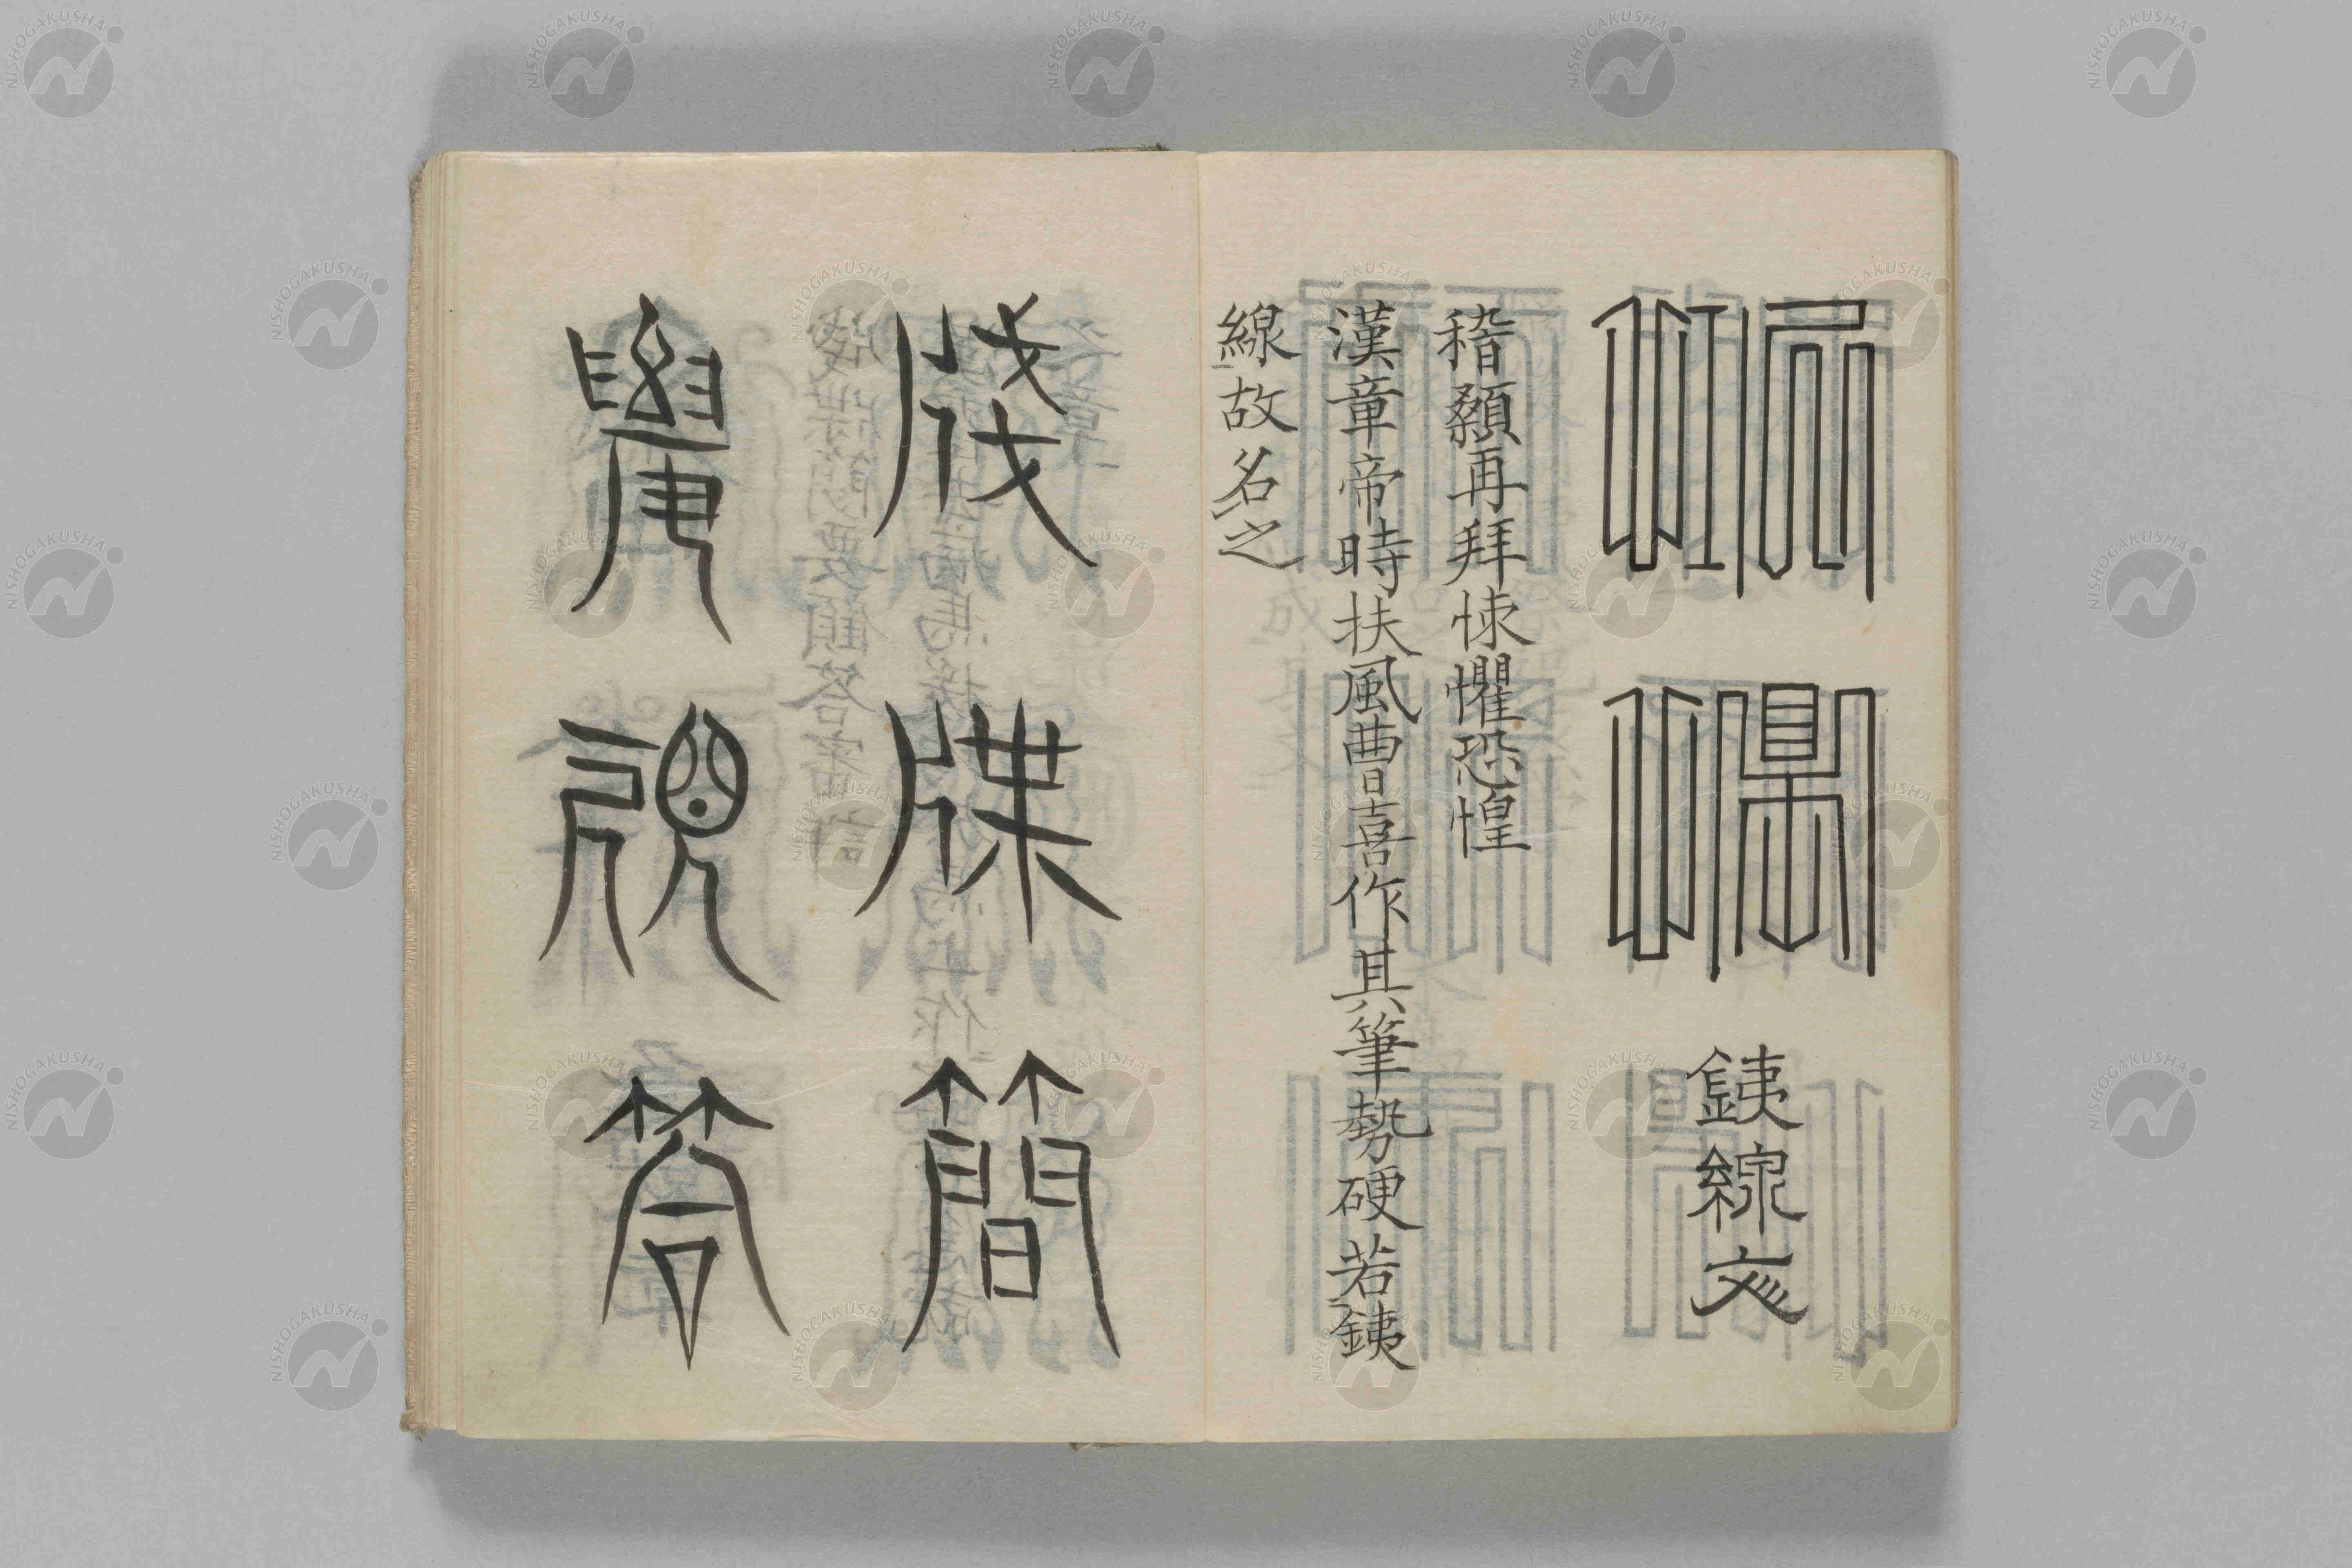 恐惶銕線文
稽顙再拜悚懼恐惶
漢章帝時扶風曹喜作其筆勢硬若銕
線故名之
牋牒簡
要顧答
NISHOGAKUSHA